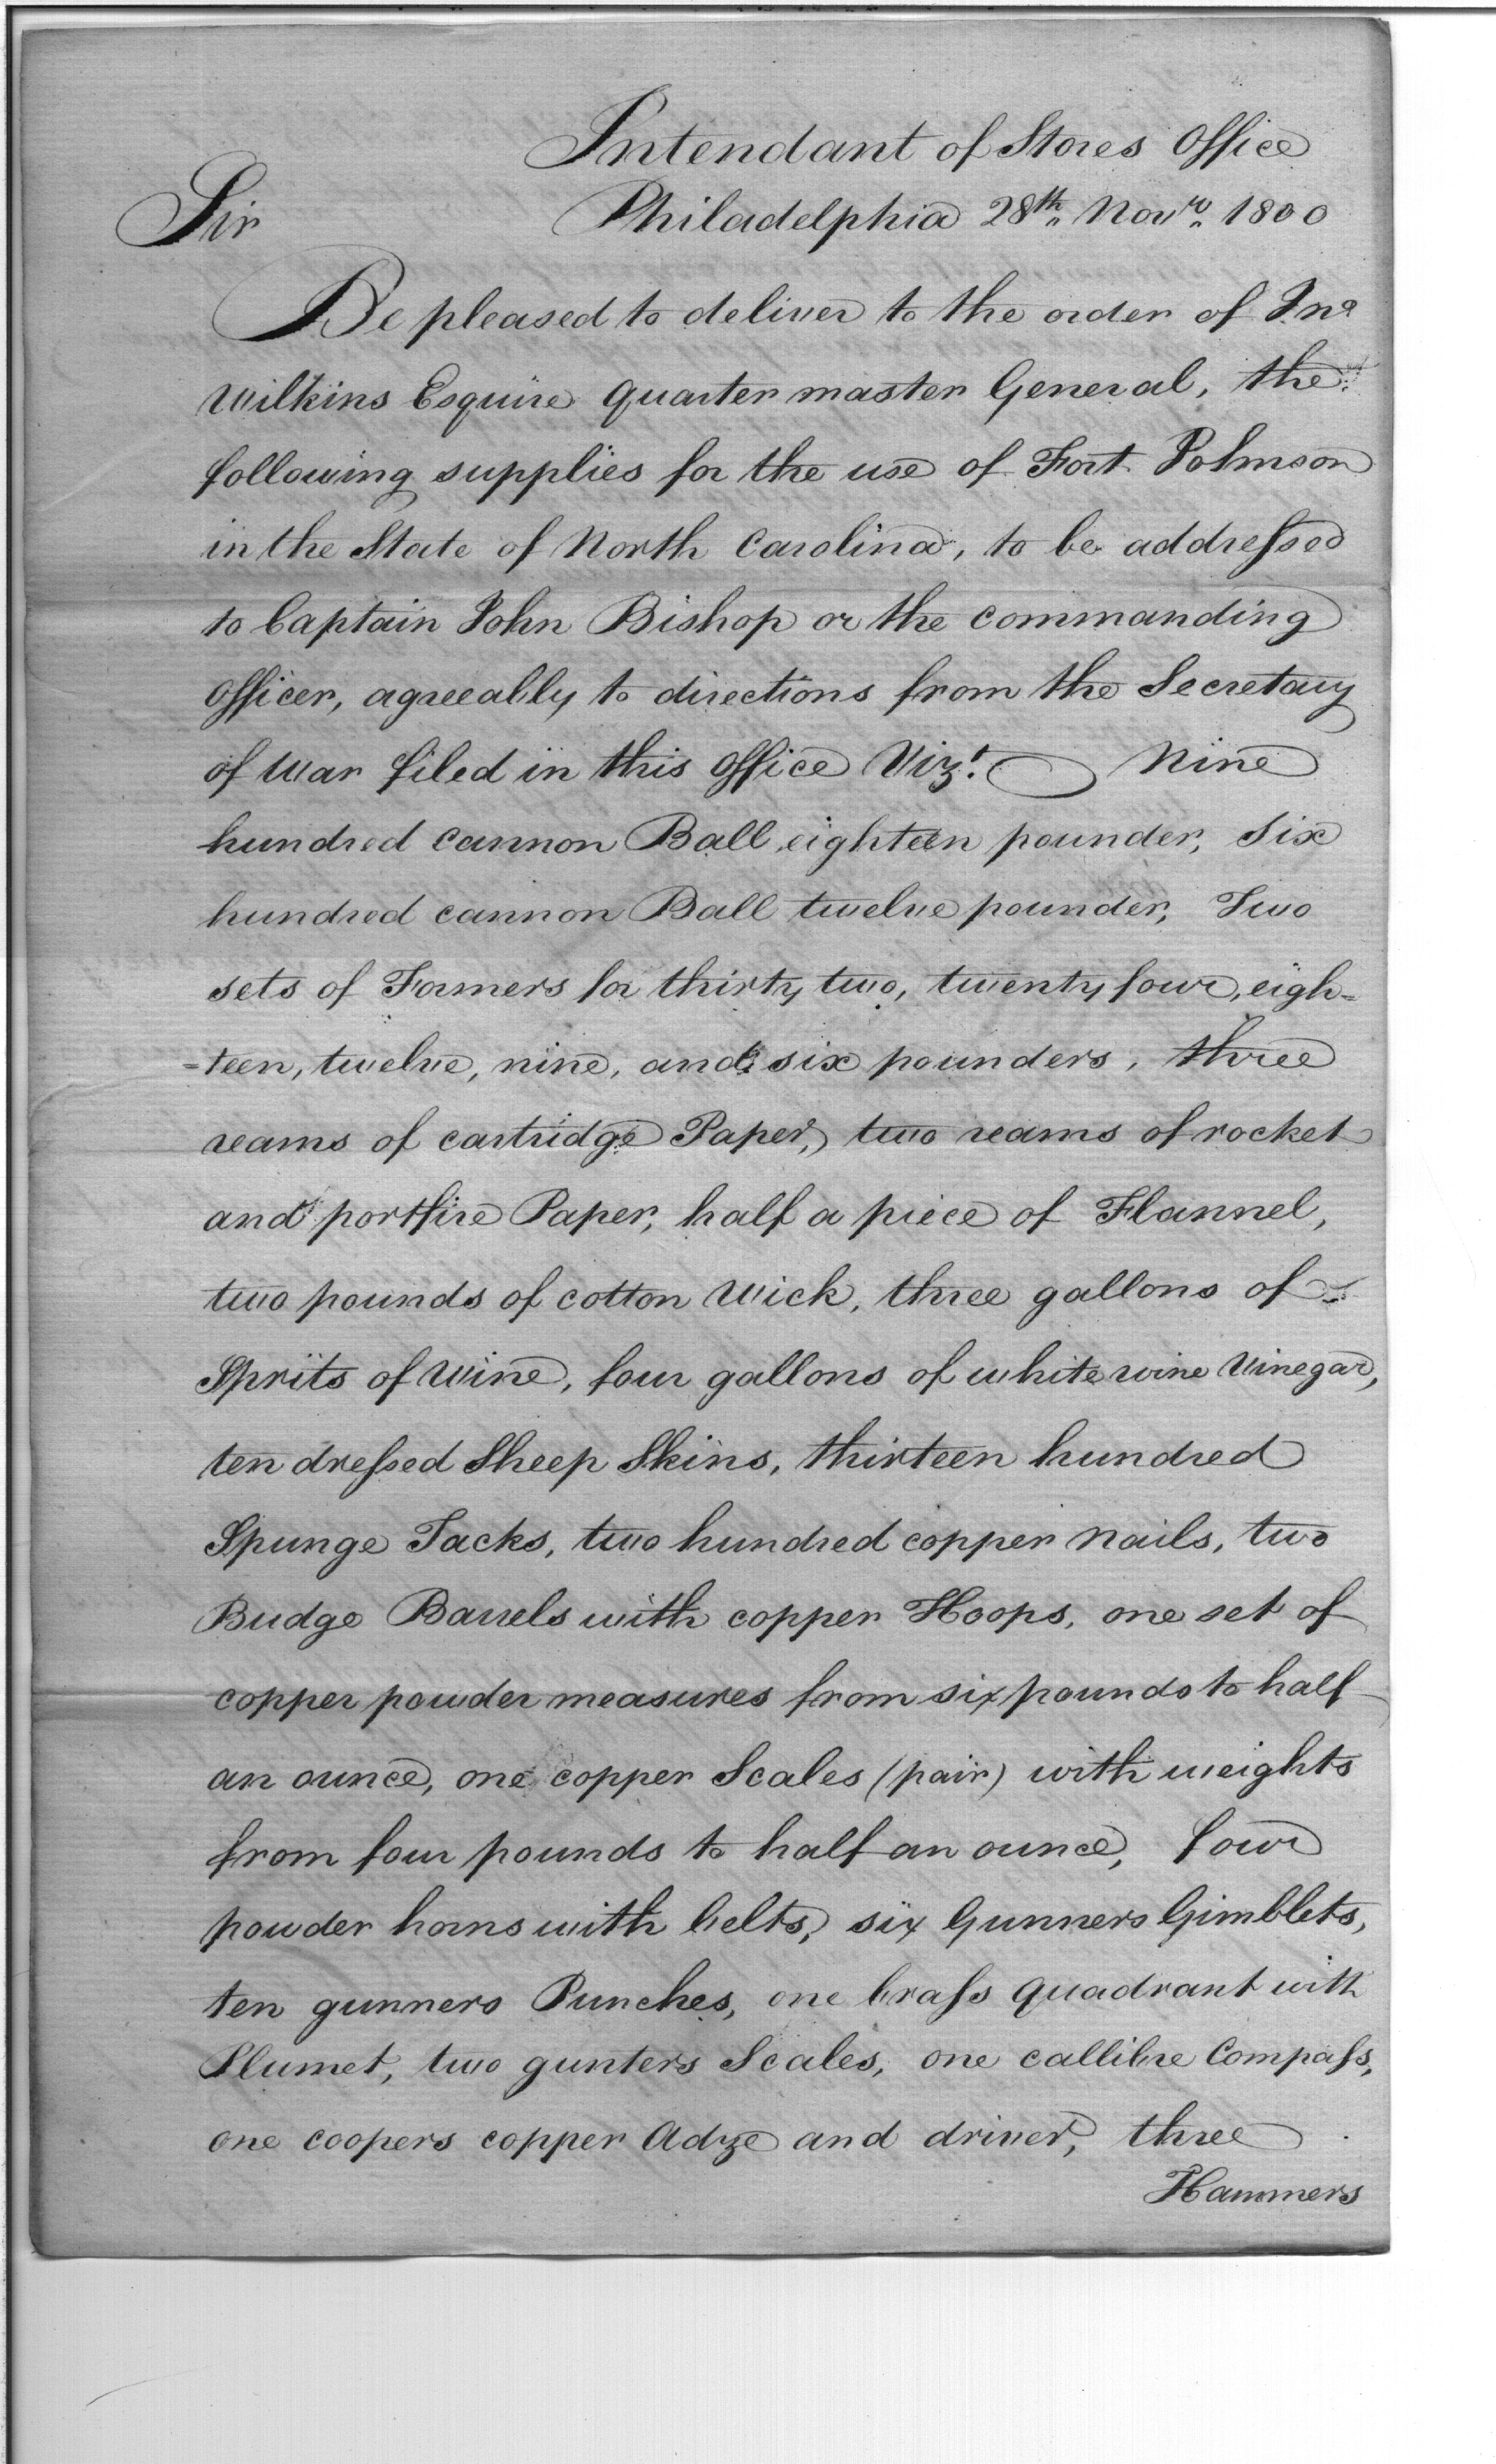 Intendant of Stores Office
Sir Philadelphia 28th Novr 1800
Be pleased to deliver to the order of Jno
Wilkins Esquire Quarter master General, the
following supplies for the use of Fort Johnson
in the State of North Carolina, to be addressed
to Captain John Bishop or the commanding
Officer, agreeably to directions from the Secretary
of War filed in this Office Vizt. Nine
hundred cannon Ball eighteen pounder, Six
hundred cannon Ball twelve pounder, Two
sets of Formers for thirty two, twenty four, eigh=
=teen, twelve, nine, and six pounders, three
reams of cartridge Paper, two reams of rocket
and portfire Paper, half a piece of Flannel,
two pounds of cotton Wick, three gallons of
Sprits of Wine, four gallons of white wine Vinegar,
ten dressed Sheep Skins, thirteen hundred
Spunge Tacks, two hundred copper Nails, two
Budge Barrels with copper Hoops, one set of
copper powder measures from six pounds to half
an ounce, one copper Scales (pair) with weights
from four pounds to half an ounce, four
powder horns with belts, six Gunners Gimblets,
ten gunners Punches, one brass Quadrant with
Plumet, two gunters Scales, one callibre Compass,
one coopers copper Adze and driver, three
Hammers